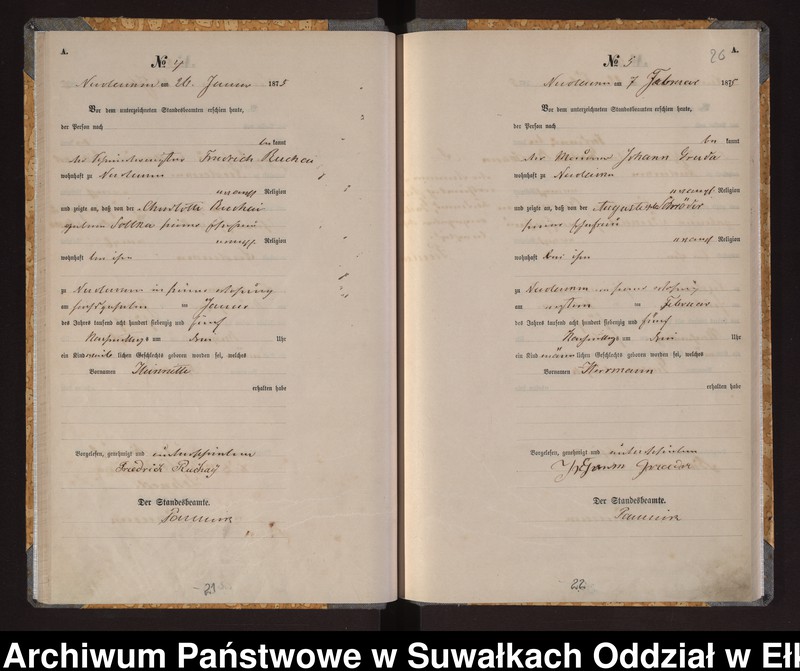 A.
№ 4
am 26. Januar 1875
Vor dem unterzeichneten Standesbeamten erschien heute,
der Person nach
be kannt
Friedrich Ruchay
wohnhaft zu
evangl Religion
und zeigte an, daß von der Charlotte Ruchai
geborne Sottka seiner Ehefrau
evangl Religion
wohnhaft bei ihm
zu in seiner Wohnung
am sechszehnten en Januar
des Jahres tausend acht hundert siebenzig und fünf
Nachmittags um drei Uhr
ein Kind weib lichen Geschlechts geboren worden sei, welches
Vornamen Heinriette
erhalten habe
Vorgelesen, genehmigt und unterschrieben
Friedrich Ruchay
Der Standesbeamte.
21
26
A.
№ 5
am 7 Februar 1875
Vor dem unterzeichneten Standesbeamten erschien heute,
der Person nach
be kannt
der Maurer Johann
wohnhaft zu
evangl Religion
und zeigte an, daß von der Auguste Schröder
seiner Ehefrau
evangl Religion
wohnhaft bei ihm
zu in seiner Wohnung
am ersten en Februar
des Jahres tausend acht hundert siebenzig und fünf
Nachmittags um drei Uhr
ein Kind männ lichen Geschlechts geboren worden sei, welches
Vornamen Herrmann
erhalten habe
Vorgelesen, genehmigt und unterschrieben
Johann
Der Standesbeamte.
22
Archiwum Państwowe w Suwałkach Oddział w Eł